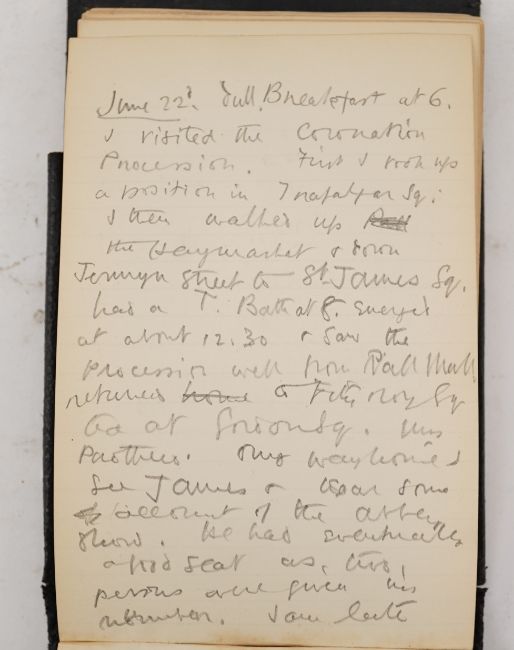 June 22d. Dull. Breakfast at 6.
I visited the Coronation
Procession. First I took up
a position in Trafalgar Sq:
I then walked up Pall
the Haymarket & down
Jermyn Street to St James Sq.
had a T. Bath at 8. emerged
at about 12.30 & saw the
procession well from Pall Mall
returned home to Fitzroy Sq
tea at Gordon Sq. Mrs
Prothero. On my way home I
see James & hear some
account of the abbey
show. He had eventually
a good seat as, two,
persons were given his
number. I am late